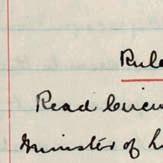 Rule
Read Circu
Minister of L